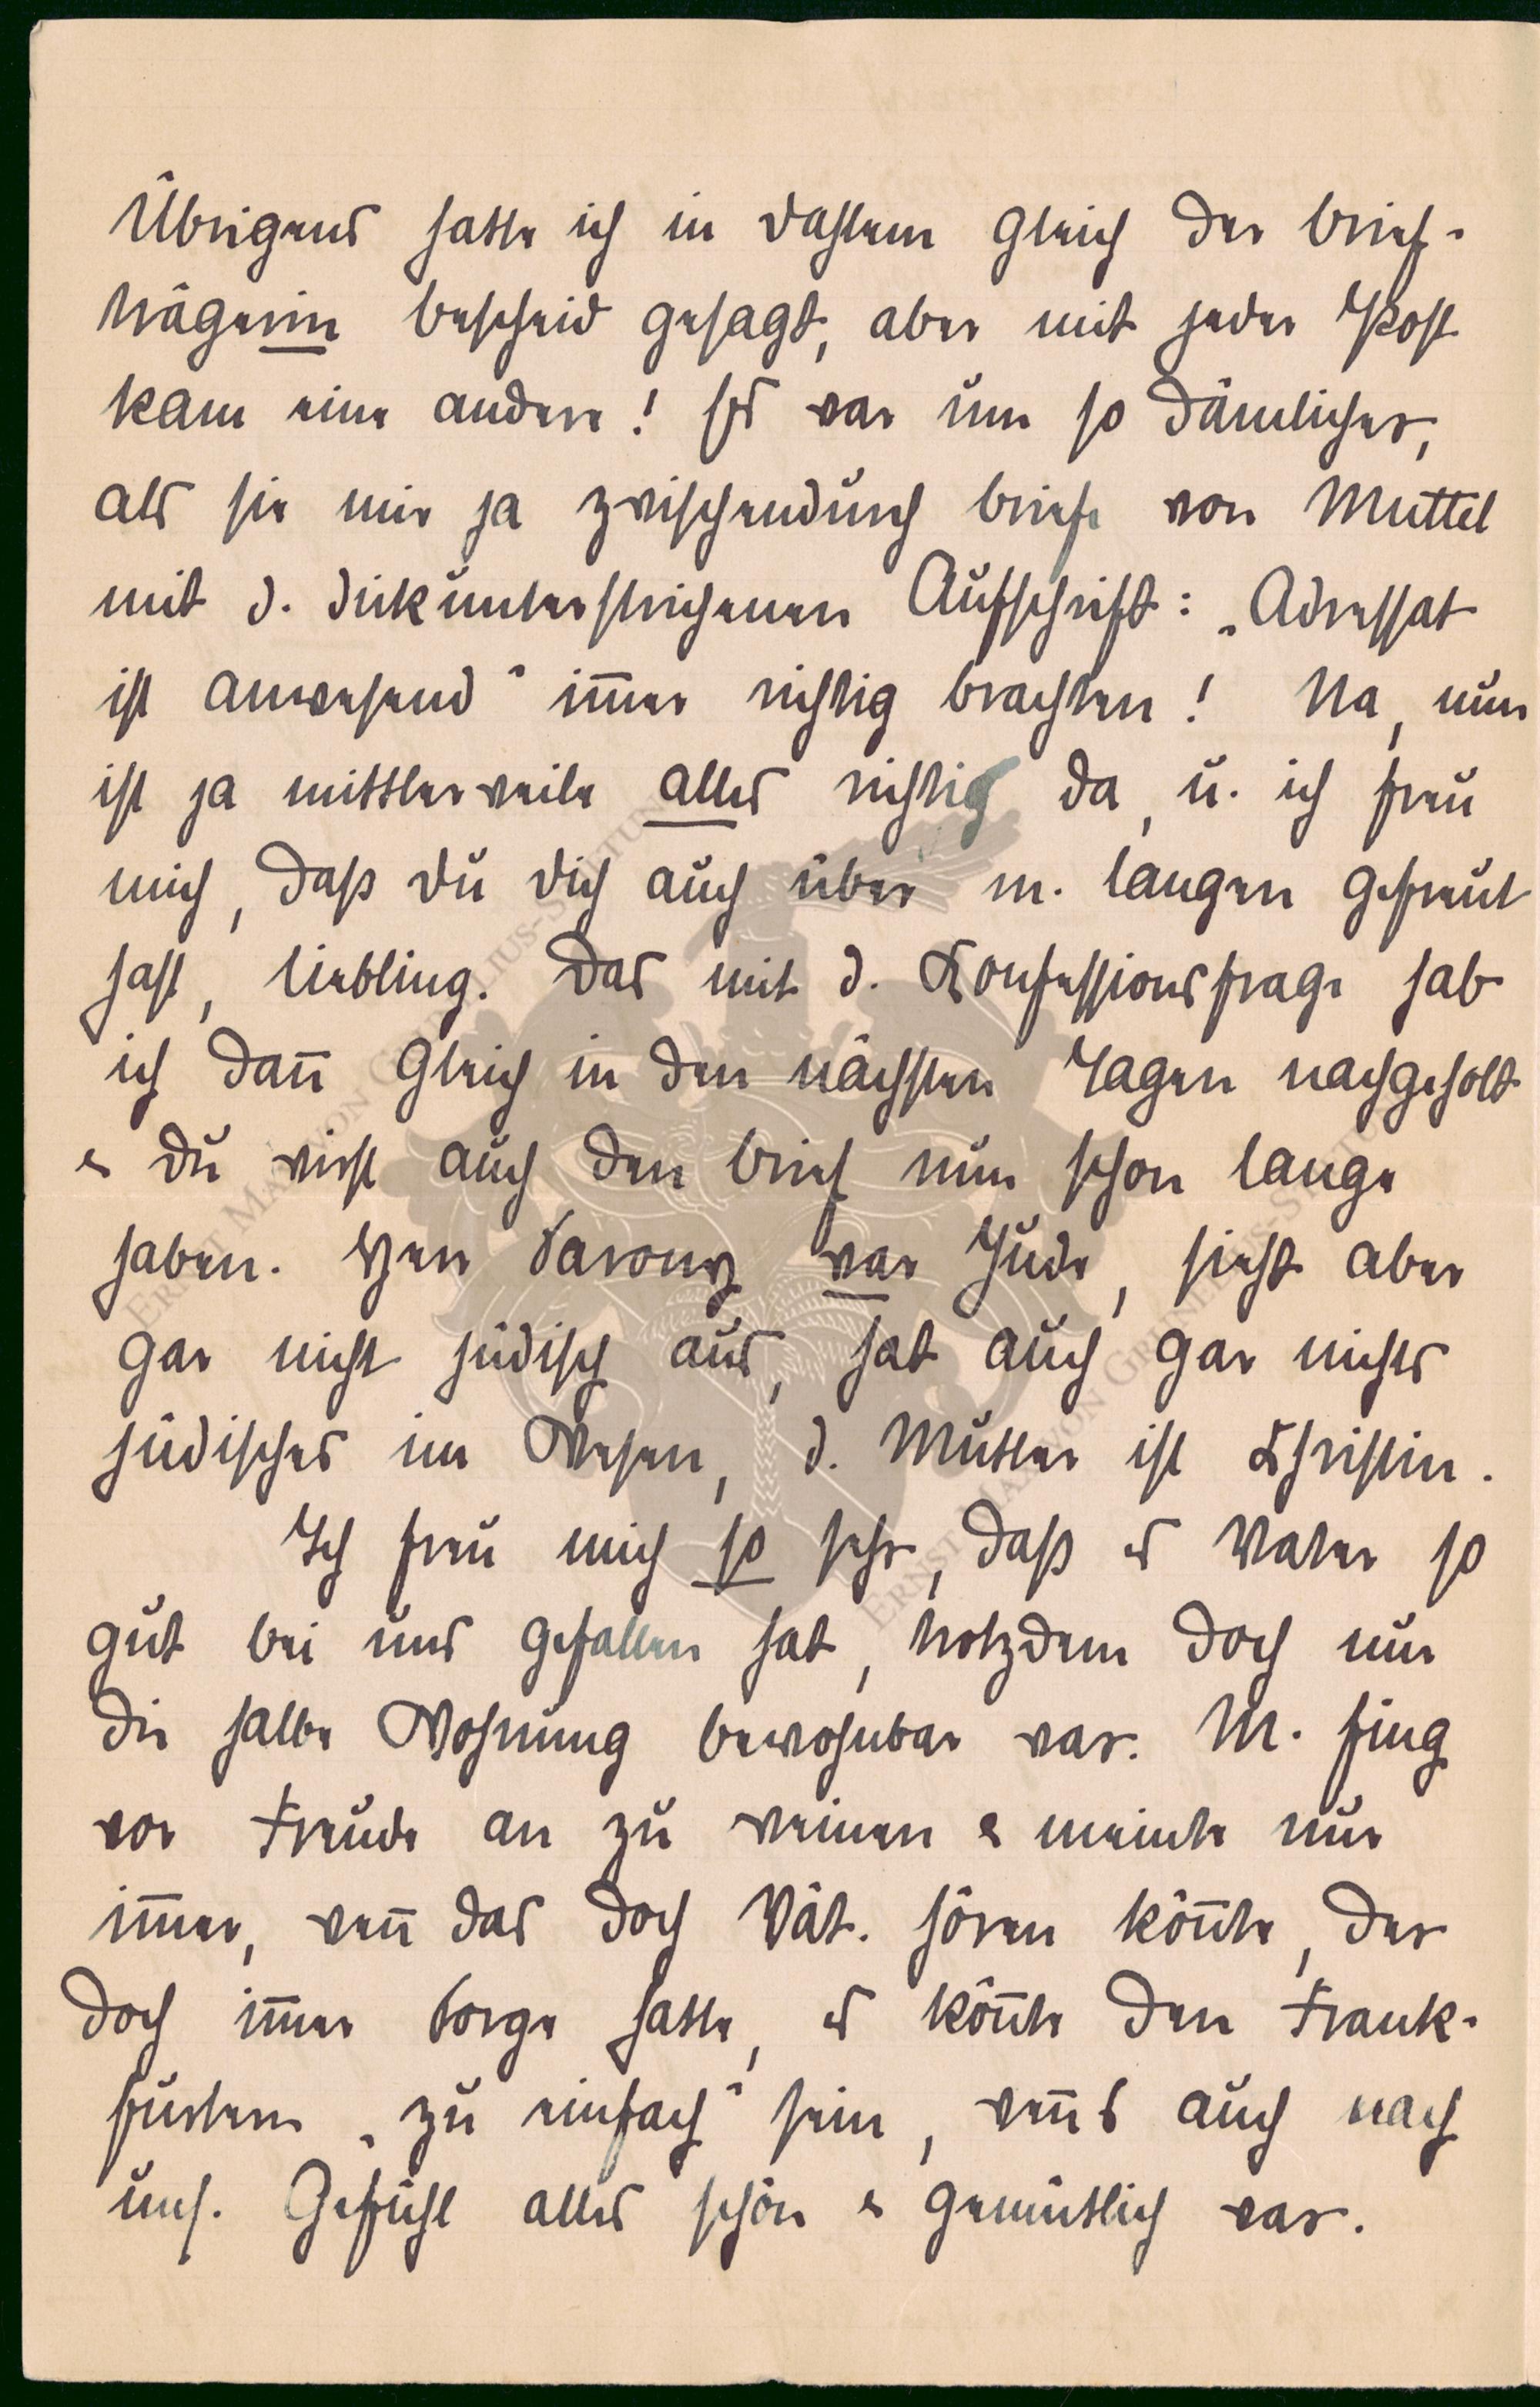 Übrigens hatte ich in Dahlem gleich der Brief-
trägerin Bescheid gesagt, aber mit jeder Post
kam eine andere! Es war um so dämlicher,
als sie mir ja zwischendurch Briefe von Muttel
mit d. dickunterstrichenen Aufschrift: „Adressat
ist anwesend“ im̅er richtig brachten! Na, nun
ist ja mittlerweile alles richtig da, u. ich freu
mich, daß Du Dich auch über m. langen gefreut
hast, Liebling. Das mit d. Konfessionsfrage hab
ich dan̅ gleich in den nächsten Tagen nachgeholt
& Du wirst auch den Brief nun schon lange
haben. Herr war Jude, sieht aber
gar nicht jüdisch aus, hat auch gar nichts
jüdisches im Wesen, d. Mutter ist Christin.
Ich freu mich so sehr, daß es Vater so
gut bei uns gefallen hat, trotzdem doch nur
die halbe Wohnung bewohnbar war. M. fing
vor Freude an zu weinen & meinte nur
im̅er, wen̅ das doch Vät. hören kön̅te, der
doch im̅er Sorge hatte, es kön̅te den Frank-
furtern „zu einfach“ sein, wen̅s auch nach
uns. Gefühl alles schön & gemütlich war.
ERNST MAX VON GRUMELIUS-STIFTUNG
ERNST MAX VON GRUMELIUS-STIFTUNG